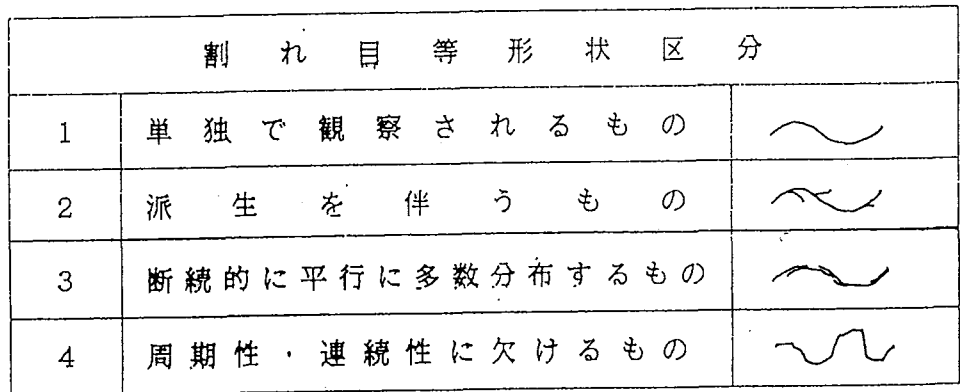 割れ目等形状区分
1 単独で観察されるもの
2 派生を伴うもの
3 断続的に平行に多数分布するもの
4 周期性・連続性に欠けるもの